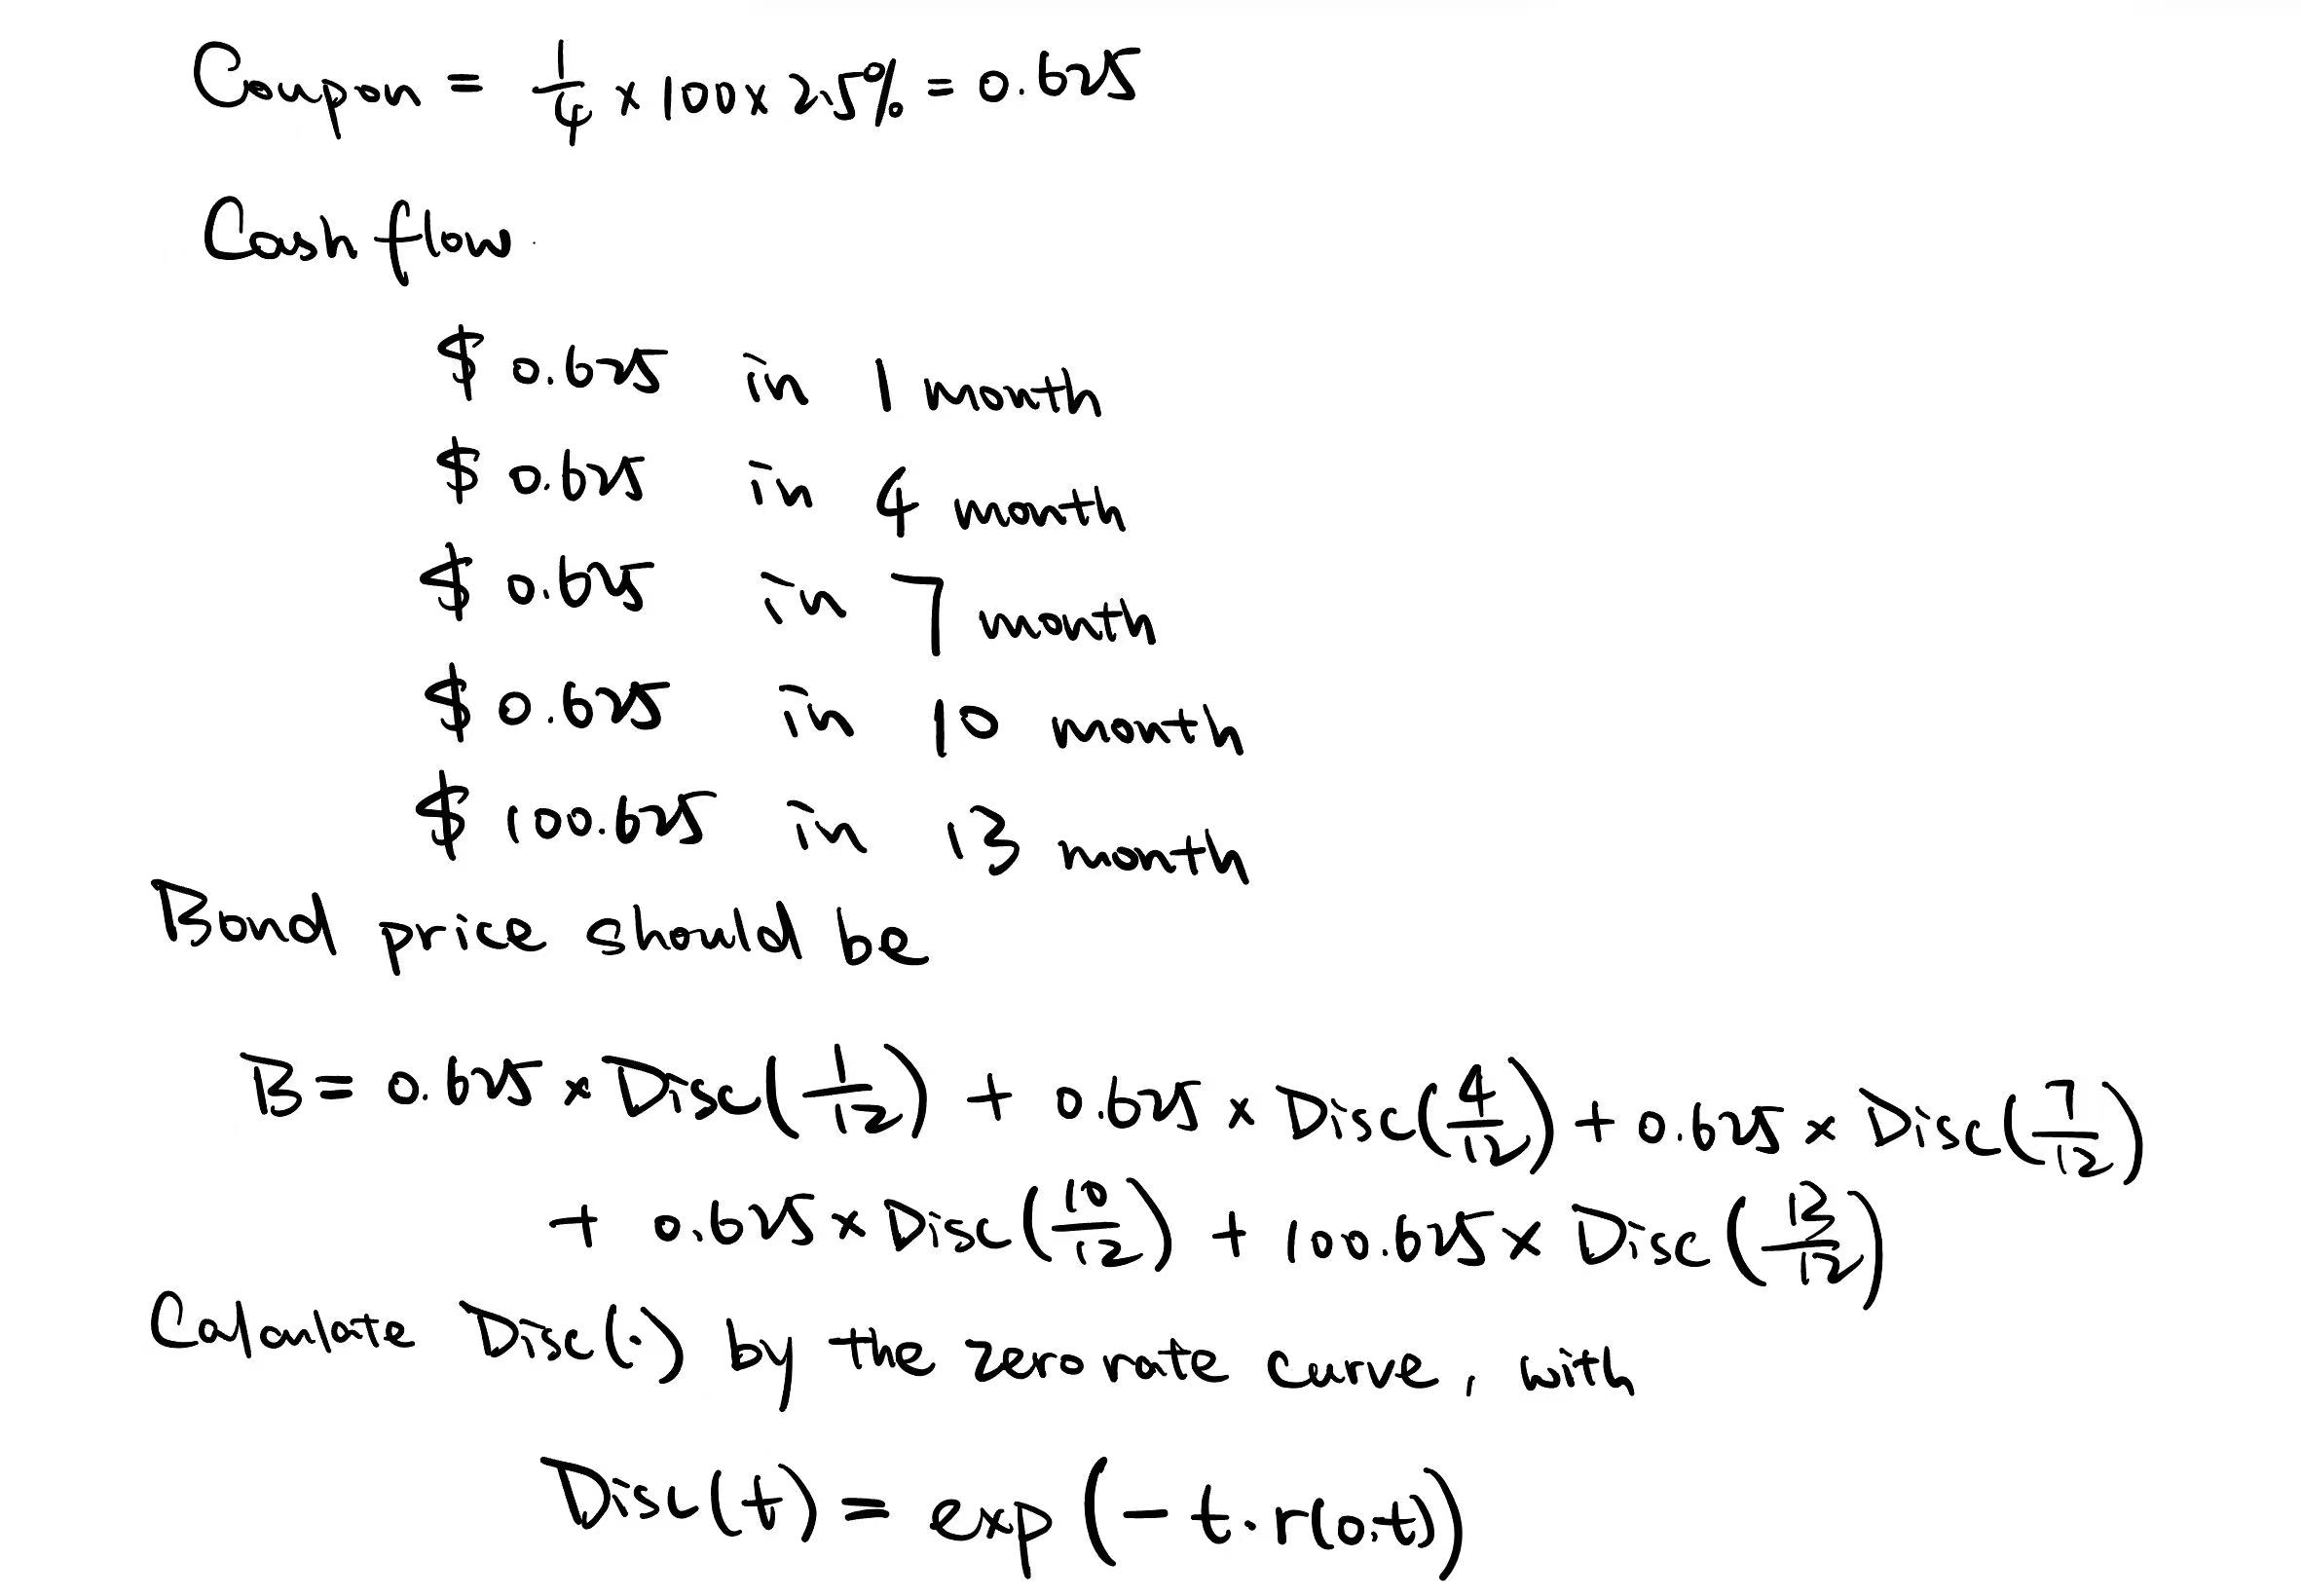 Coupon = 1/4 × 100 × 2.5% = 0.625
Cash flow.
$ 0.625 in 1 month
$ 0.625 in 4 month
$ 0.625 in 7 month
$ 0.625 in 10 month
$ 100.625 in 13 month
Bond price should be
B = 0.625 × Disc(1/12) + 0.625 × Disc(4/12) + 0.625 × Disc(7/12)
+ 0.625 × Disc(10/12) + 100.625 × Disc(13/12)
Calculate Disc(·) by the zero rate curve, with
Disc(t) = exp(-t·r(0,t))